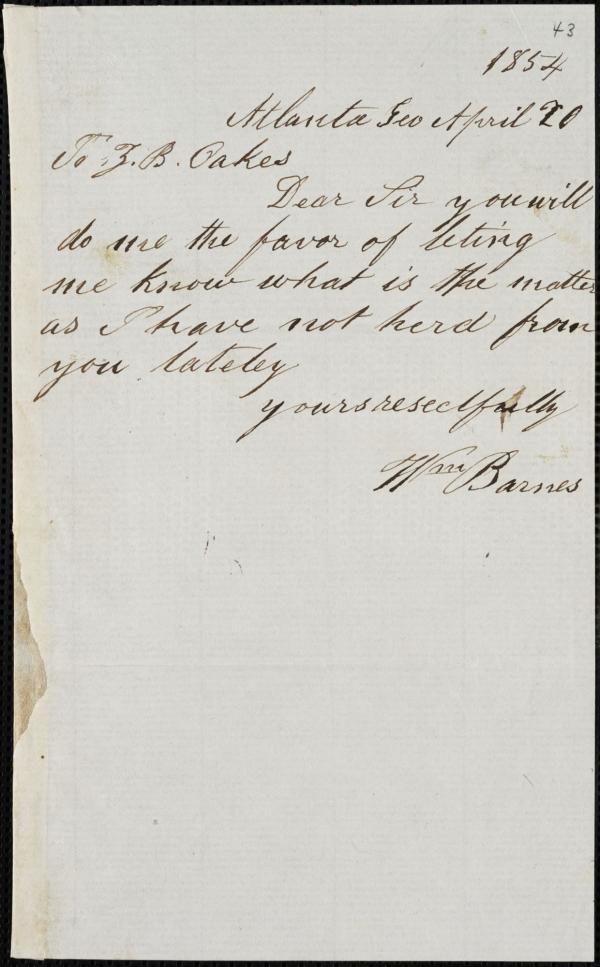 43
1854
Atlanta Geo April 20
To Z. B. Oakes
Dear Sir you will
do me the favor of leting
me know what is the matter
as I have not herd from
you lateley
yours resectfully
Wm Barnes